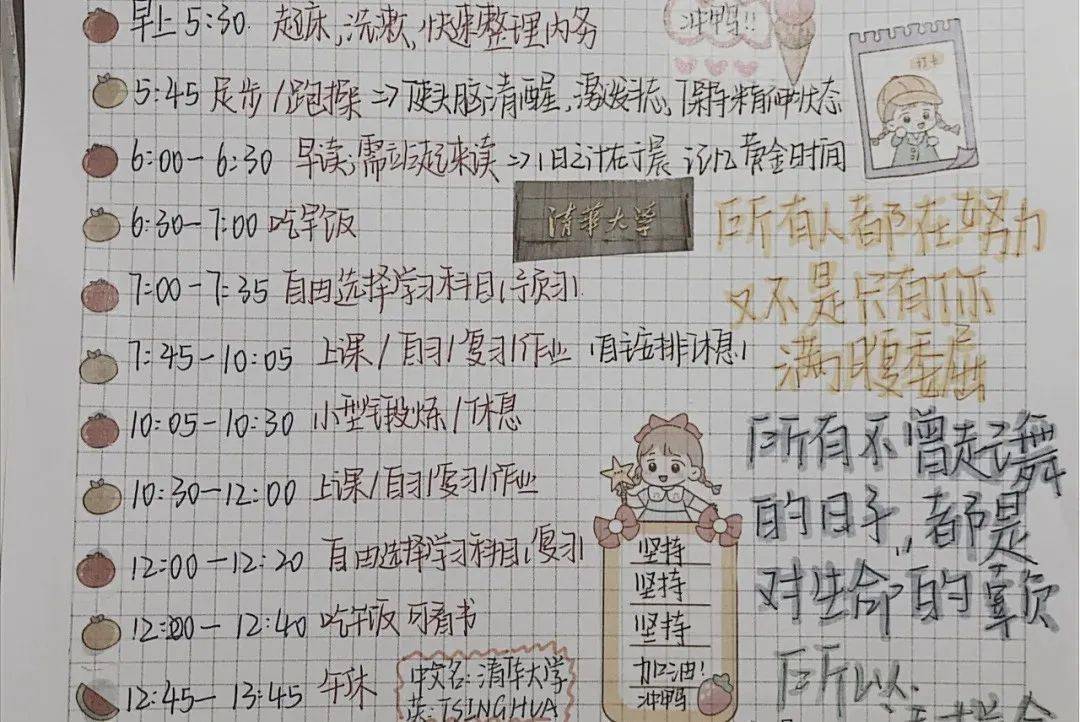 早上5:30 起床,洗漱,快速整理内务
冲鸭!!
打卡
5:45 足步/跑操=>使头脑清醒,激发斗志,保持精神状态
6:00-6:30 早读;需站起来读=>1日之计在于晨 记忆黄金时间
6:30-7:00 吃早饭
清华大学
7:00-7:35 自由选择学习科目(预习)
7:45-10:05 上课/自习/复习/作业 (自主安排休息)
10:05-10:30 小型锻炼/休息
10:30-12:00 上课/自习/复习/作业
12:00-12:20 自由选择学习科目(复习)
12:20-12:40 吃午饭 可看书
12:45-13:45 午休
中文名:清华大学
英:TSINGHUA
所有人都在努力
又不是只有你
满腹委屈
所有不曾起舞
的日子,都是
对生命的辜负
所以
坚持
坚持
坚持
加油!
冲鸭